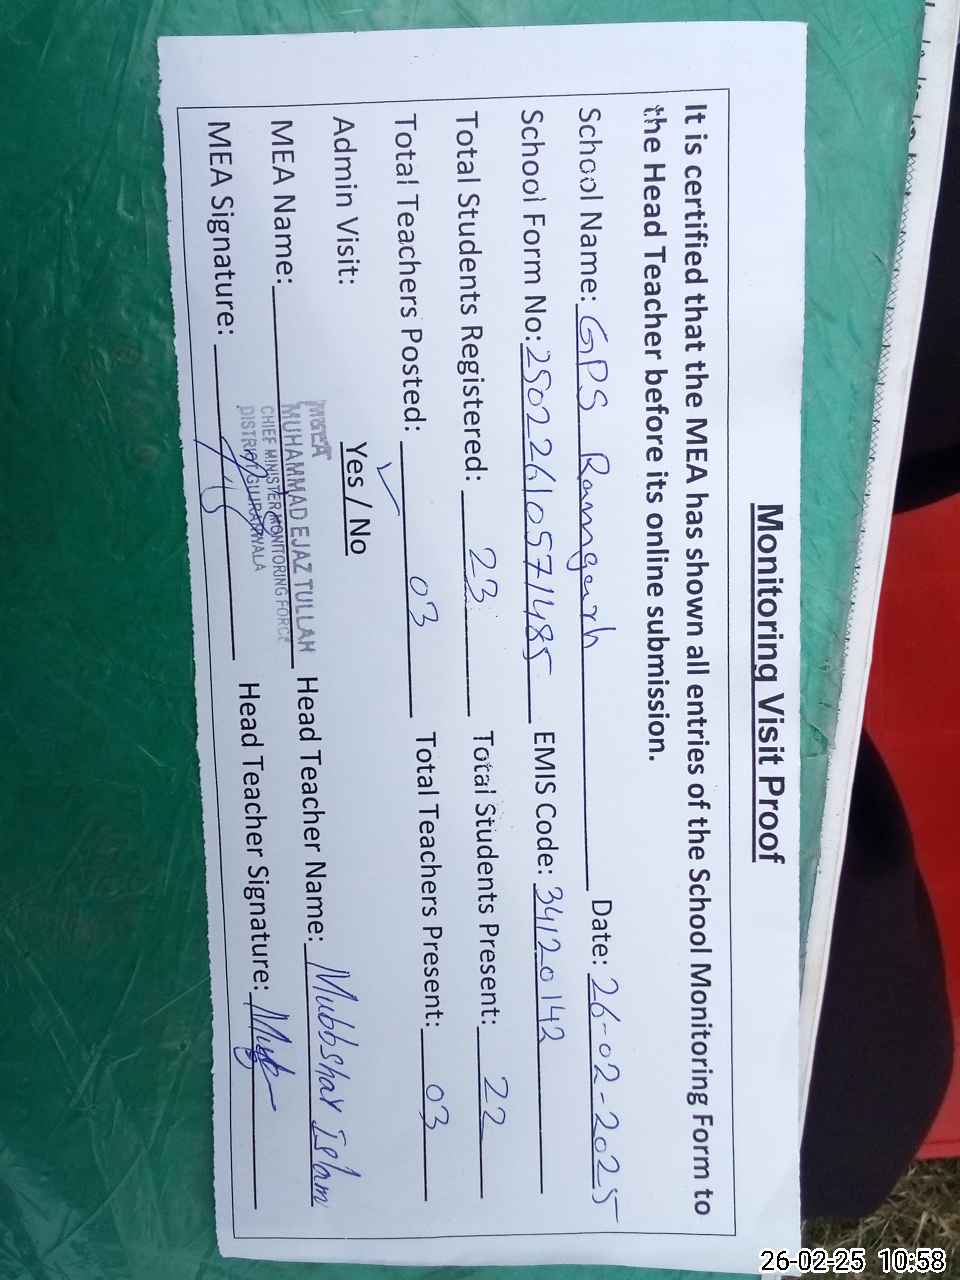 Monitoring Visit Proof
It is certified that the MEA has shown all entries of the School Monitoring Form to
the Head Teacher before its online submission.
School Name: GPS Ramgarh Date: 26-02-2025
School Form No: 25022610571485 EMIS Code: 34120142
Total Students Registered: 23 Total Students Present: 22
Total Teachers Posted: 03 Total Teachers Present: 03
Admin Visit: Yes / No
MEA Name: MUHAMMAD EJAZ TULLAH Head Teacher Name: Mubbshar Islam
CHIEF MINISTER MONITORING FORCE
DISTRICT GUJRANWALA
MEA Signature: Head Teacher Signature:
26-02-25 10:58